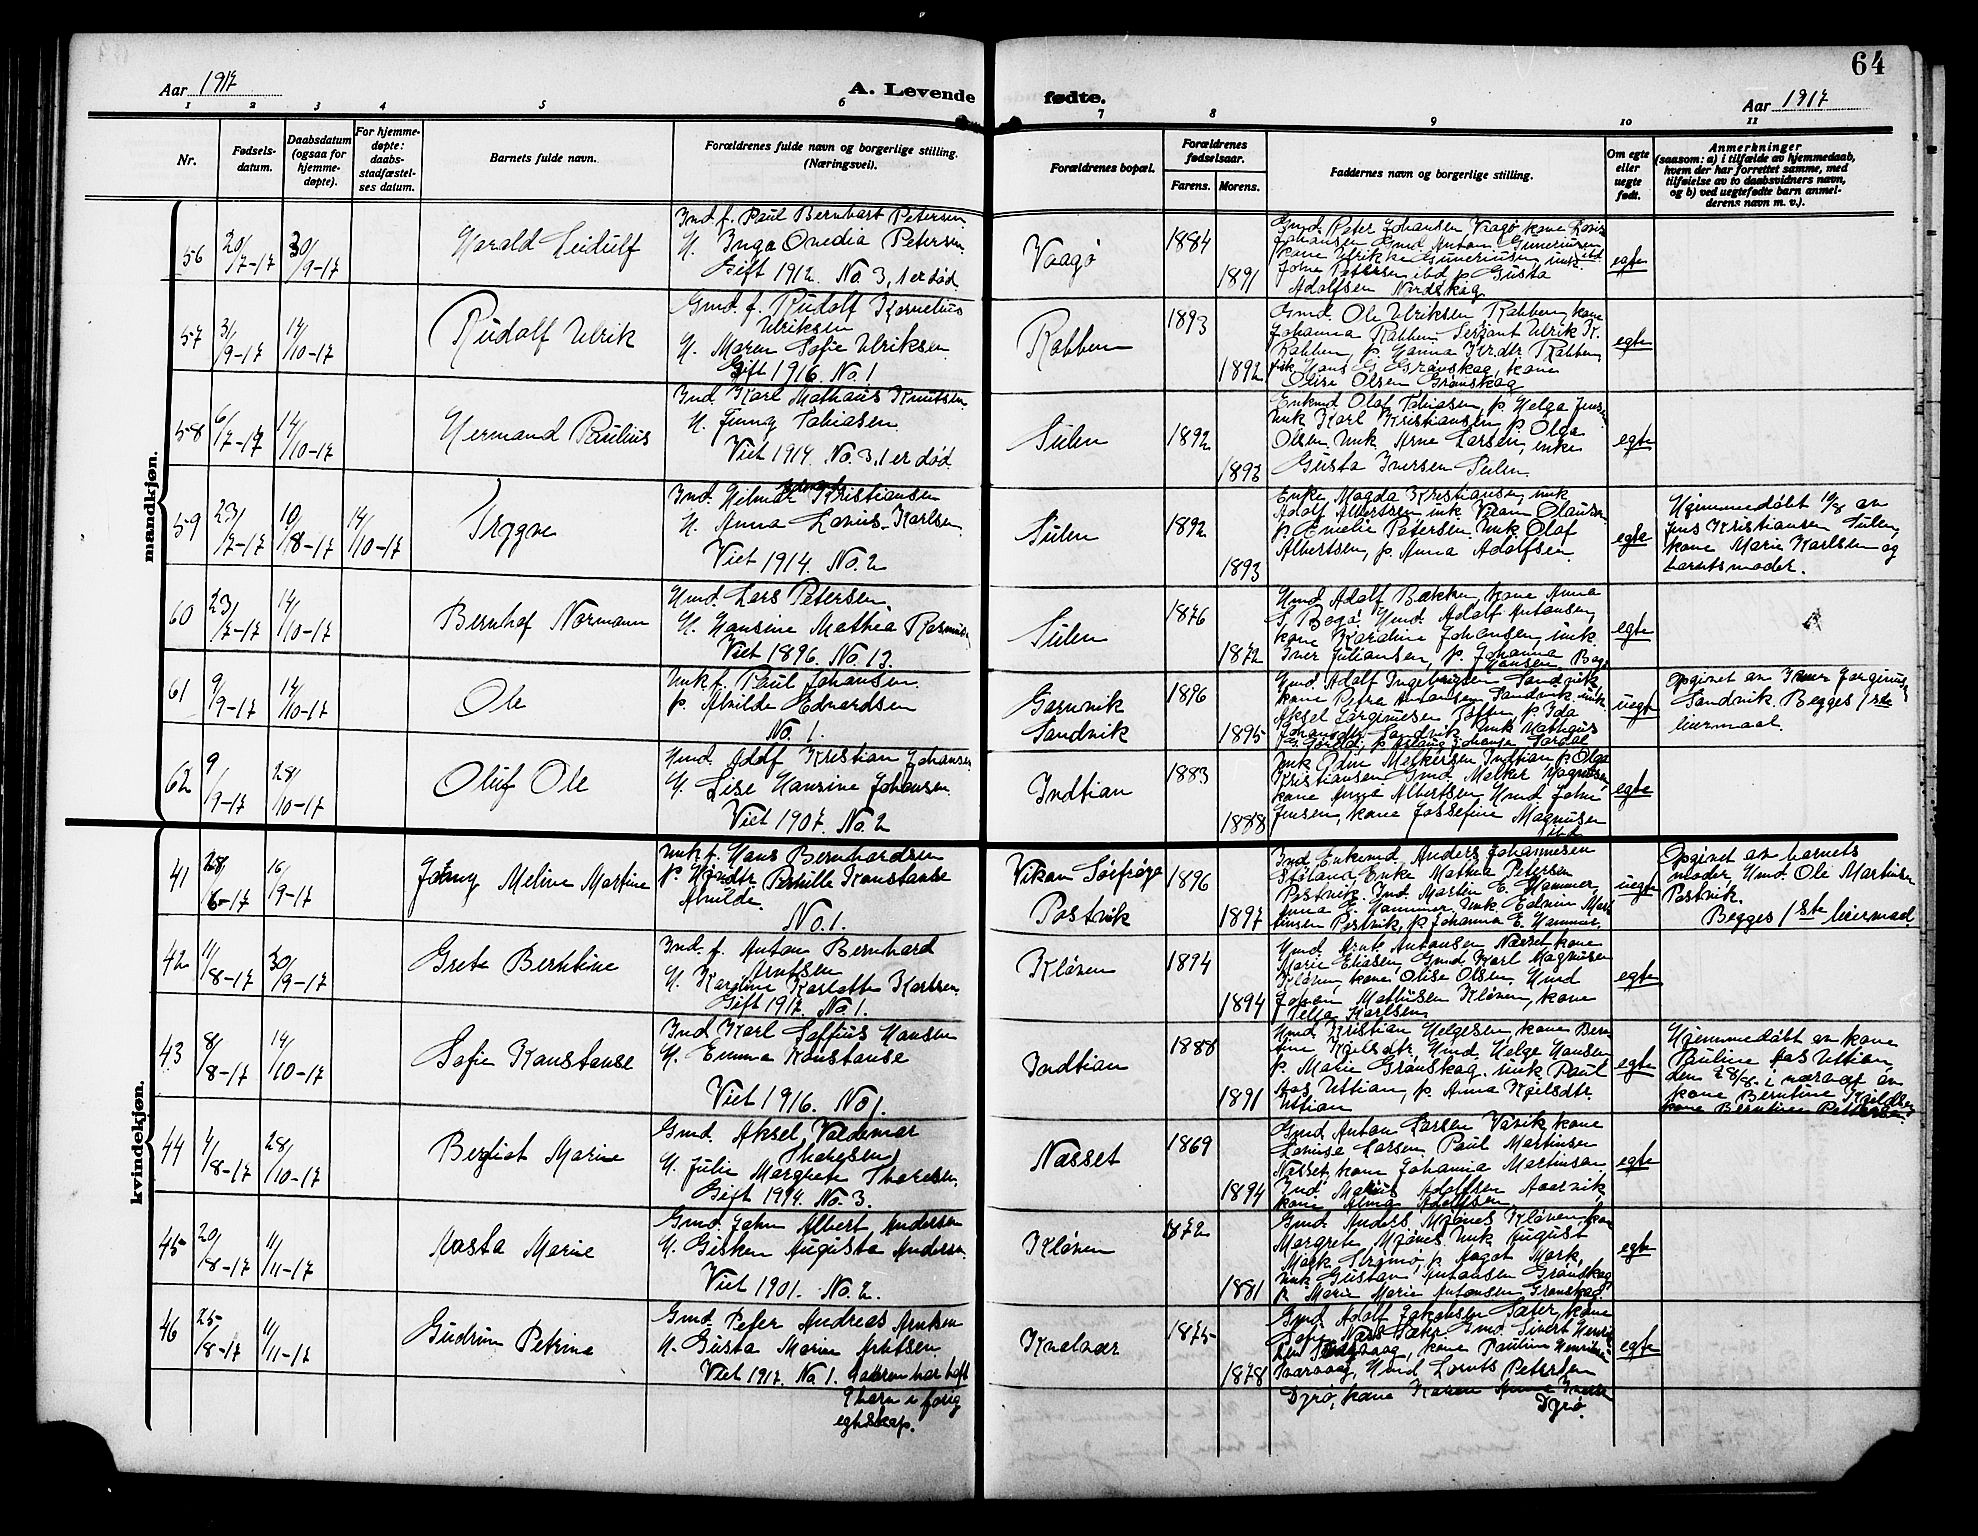 64
Aar 1917
A. Levende fødte.
Aar 1917
1 2 3 4 5 6 7 8 9 10 11
Nr.
Fødsels-
datum.
Daabsdatum
(ogsaa for
hjemme-
døpte).
For hjemme-
døpte:
daabs-
stadfæstel-
ses datum.
Barnets fulde navn.
Forældrenes fulde navn og borgerlige stilling.
(Næringsvei).
Forældrenes bopæl.
Forældrenes
fødselsaar.
Farens. Morens.
Faddernes navn og borgerlige stilling.
Om egte
eller
uegte
født.
Anmerkninger
(saasom: a) i tilfælde av hjemmedaab,
hvem der har forrettet samme, med
tilføielse av to daabsvidners navn,
og b) ved uegtefødte barn anmel-
derens navn m. v.).
mandkjøn.
56
20/7-17
30/9-17
Harald Leidulf
Ind. f. Paul Bernhart Petersen
H. Inga Ovedia Petersen
Gift 1912. No. 3, 1 er død
Vaagø
1884
1891
Gmd. Peter Johansen Vaagø kone Lovise
Johansen Gmd Anton Guneriusen
kone Ulrikke Guneriusen, unk. ibd
John Pettersen ibd p. Gusta
Adolfsen Nordskag
egte
57
3/9-17
14/10-17
Rudolf Ulrik
Gmd. f. Rudolf Kornelius
Ulriksen
H. Maren Sofie Ulriksen
Gift 1916. No. 1
Rabben
1893
1892
Gmd. Ole Ulriksen Rabben, kone
Johanna Rabben Serjant Ulrik K.
Rabben, p. Hanna Kr.dtr Rabben,
Hans G. Grønskag, kone
Olise Olsen Grønskag
egte
58
6/7-17
14/10-17
Hermand Paulius
Ind Karl Mathæus Knutsen
H. Jenny Tobiasen
Viet 1914. No. 3, 1 er død
Sulen
1892
1893
Enkmd Olaf Tobiasen, p. Helga Jens
Unk Karl Kristiansen, p. Olga
Olsen, Unk. Arne Larsen, enke
Gusta Iversen Sulen
egte
59
23/7-17
10/8-17
14/10-17
Trygve
Ind. Hilmar Kristiansen
H. Anna Lovise Karlsen
Viet 1914. No. 2
Sulen
1892
1893
Enke Magda Kristiansen, unk
Adolf Albertsen unk Viam Olausen
p. Emelie Petersen. Unk Olaf
Albertsen, p. Anna Adolfsen
egte
Hjemmedøbt 10/8 av
Jens Kristiansen Sulen,
kone Marie Karlsen og
barnets moder.
60
23/7-17
14/10-17
Bernhof Normann
Hmd. Lars Petersen
H. Hansine Mathea Rasmus
Viet 1896. No. 13.
Sulen
1876
1872
Hmd Adolf Bækken, kone Anna
S. Bogø. Hmd. Adolf Antonsen,
kone Karoline Johansen, unk
Iver Juliansen, p. Johanna
Hansen Bogø
egte
61
9/9-17
14/10-17
Ole
Unk f. Paul Johansen
p. Alvilde Edvardsen
No. 1.
Garnvik
Sandvik
1896
1895
Gmd. Adolf Ingebrigtsen Sandvik
kone Petra Antonsen Sandvik unk
Aksel p. Ida
Johansdtr Sandvik Unk Mathæus
uegte
Opgivet av Iver
Sandvik. Begges 1ste
leiermaal.
62
9/9-17
28/10-17
Oluf Ole
Hmd. Adolf Kristian Johansen
H. Lise Hansine Johansen
Viet 1907. No. 2
Indtian
1883
1888
Unk Odin Melkersen Indtian p. Olga
Kristiansen Gmd. Melker Magnusen
kone Anna Albertsen Hmd John
Jensen, kone Jossefine Magnusen
ibd
egte
kvindekjøn.
41
28/6-17
16/9-17
Jenny Meline Martine
Unk f. Hans Bernhardsen
p. Pernille Konstanse
Alvilde.
No. 1.
Vikan Sørfrøya
Postvik
1896
1897
Ind Enkemd. Anders Johannesen
Støland, Enke Mathea Petersen
Postvik. Ind. Martin E. Hammer,
Anna E. Hammer. Unk Edvin Mart
insen Postvik, p. Johanna E. Hammer
uegte
Opgivet av barnets
moder Hmd. Ole Martinsen
Postvik.
Begges 1ste leiermaal.
42
11/8-17
30/9-17
Grete Berntine
Ind. f. Anton Bernhard
Arntsen
H. Karoline Karlotte Karlsen
Gift 1917. No. 1.
Kløven
1894
1894
Hmd. Arnt Antonsen Næsset kone
Marie Eliasen, Gmd Karl Magnusen
Kløven, kone Olise Olsen. Hmd
Johan Mathisen Kløven, kone
Karlsen
egte
43
8/8-17
14/10-17
Sofie Konstanse
Ind Karl Soffius Hansen
H. Emma Konstanse
Viet 1916. No 1.
Indtian
1888
1891
Hmd Kristian Helgesen, kone Bern
tine Kjelsdtr, Hmd. Helge Hansen
p. Marie Grønskag, unk Paul
Aas Uttian, p. Anna Kjelsdtr
Uttian
egte
Hjemmedøbt av kone
Pauline Aas Uttian,
den 28/8 - i nærvær av
kone Berntine Kjeldsen
kone Berntine Pettersen
44
4/8-17
28/10-17
Bergliot Marie
Gmd. Aksel Valdemar
Thoresen
H. Julie Margrete Thoresen
Gift 1914. No. 3.
Næsset
1869
1894
Gmd. Anton Larsen Vavik kone
Lovise Larsen Paul Martinsen
Næsset, kone Johanna Martinsen,
Ind. Marius Adolfsen
kone Alma Adolfsen
egte
45
20/8-17
11/11-17
Aasta Marie
Gmd. John Albert Andersen
H. Gisken Augusta Andersen
Viet 1901. No. 2.
Kløven
1872
1881
Gmd Anders Mjønes Kløven, kone
Margrete Mjønes unk August
Mork Strømø, p. Aagot Mork,
unk Gustav Antonsen Grønskag
p. Marie Marie Antonsen Grønskag
egte
46
25/8-17
11/11-17
Gudrun Petrine
Gmd. Peter Andreas Arntsen
H. Gusta Marie Arntsen
Viet 1917. No. 1. Moderen har havt
7 barn i forrig
egteskap.
Kvalvær
1875
1878
Gmd. Adolf Jakobsen Sæter, kone
Sofie Næss Sæter. Gmd. Sivert Henrik
sen kone Pauline Henriksen
Hmd Lornts Petersen
Dyrø, kone Karen
Dyrø.
egte